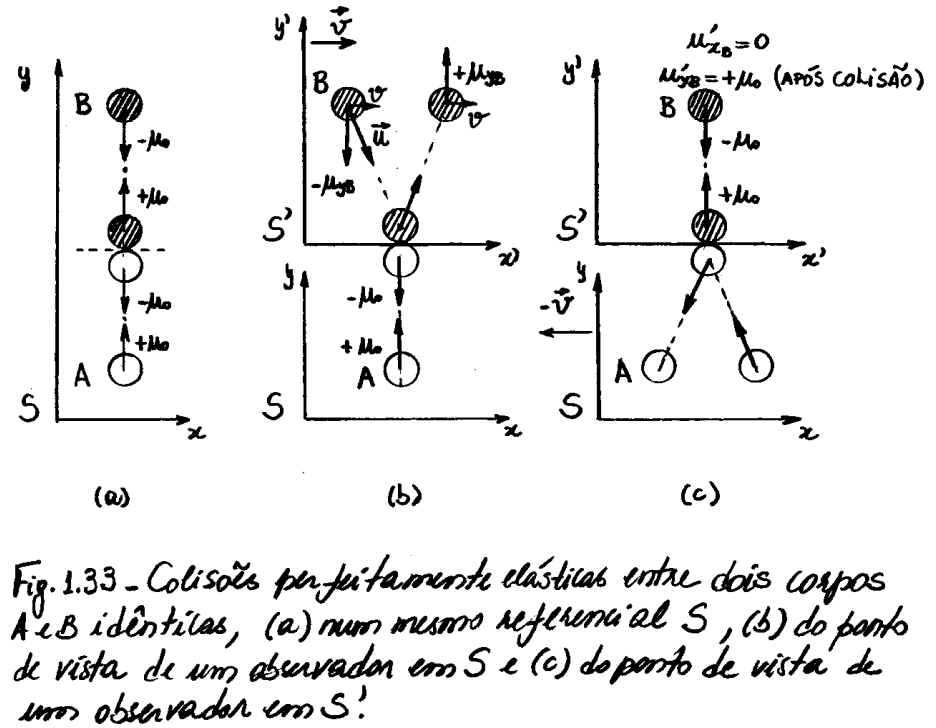 y
B
-μ₀
+μ₀
-μ₀
+μ₀
A
S
x
(a)
y'
v⃗
B
v
u⃗
-μyB
+μyB
v
S'
x'
y
-μ₀
+μ₀
A
S
x
(b)
μ'xB = 0
μ'yB = +μ₀ (APÓS COLISÃO)
y'
B
-μ₀
+μ₀
S'
x'
y
-v⃗
A
S
x
(c)
Fig. 1.33 - Colisões perfeitamente elásticas entre dois corpos
A e B idênticas, (a) num mesmo referencial S, (b) do ponto
de vista de um observador em S e (c) do ponto de vista de
um observador em S'.